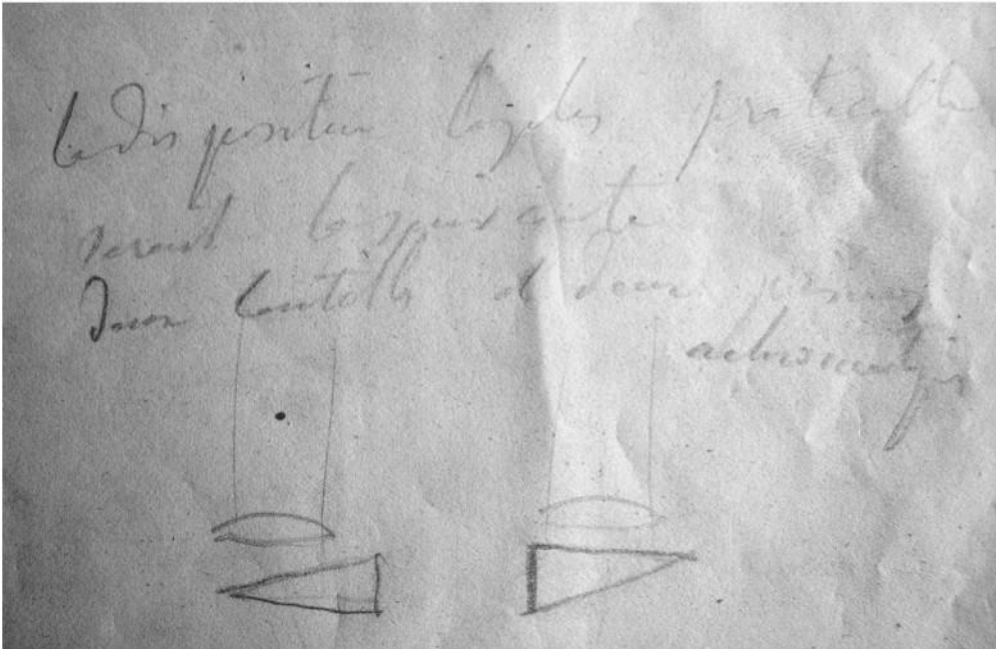 La disposition la plus praticable
serait la suivante
Deux lentilles et deux prismes
achromatiques